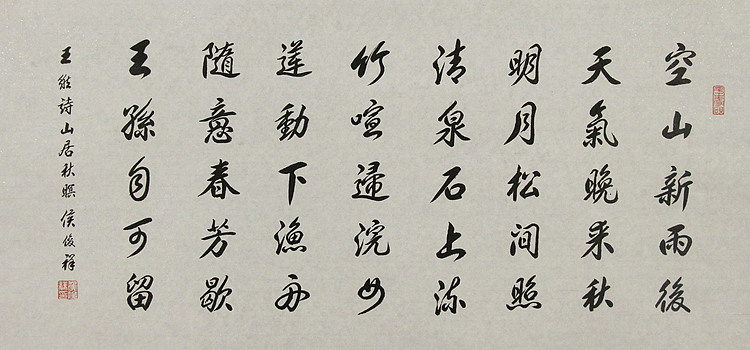 空山新雨後
天氣晚来秋
明月松间照
清泉石上流
竹喧歸浣女
莲動下漁舟
隨意春芳歇
王孫自可留
王維詩山居秋暝 侯俊祥